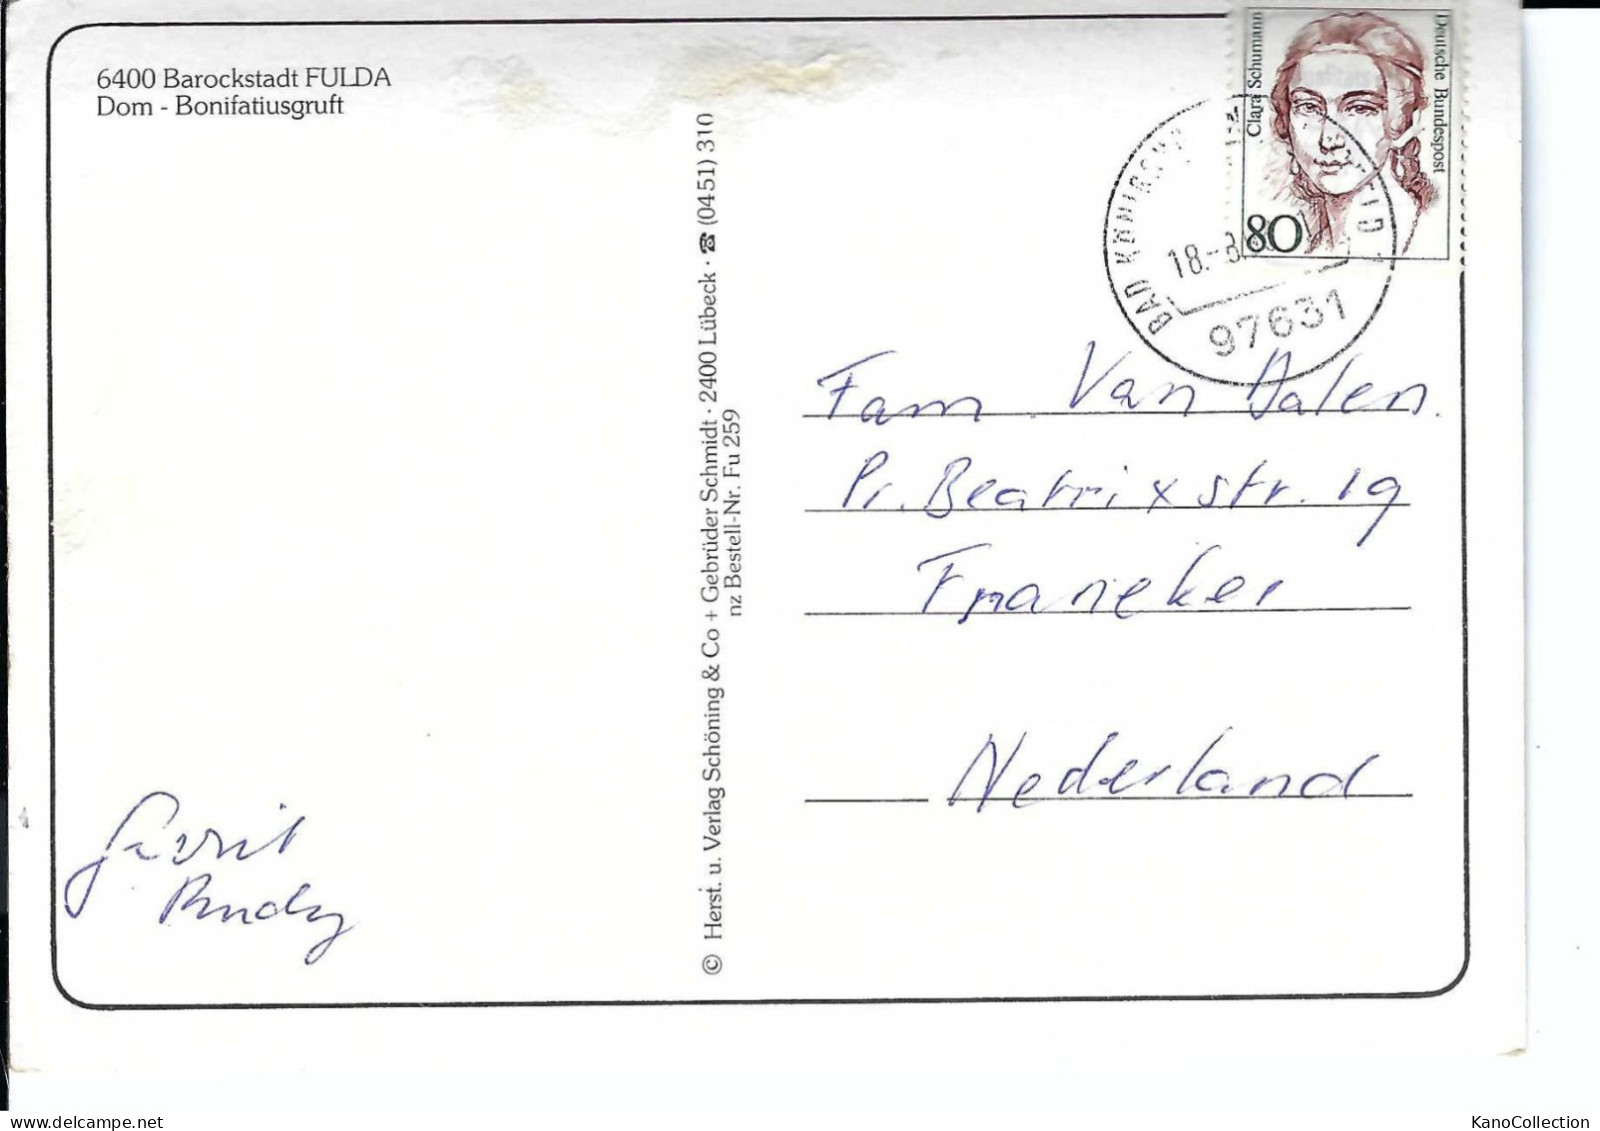 6400 Barockstadt FULDA
Dom - Bonifatiusgruft
Clara Schumann
Deutsche Bundespost
80
BAD KÖNIGSH
FELD 1
18.-8.
97631
Fam. Van Dalen.
Pr. Beatrixstr. 19
Franeker
Nederland
Gerrit
Rudy
© Herst. u. Verlag Schöning & Co + Gebrüder Schmidt · 2400 Lübeck · ☎ (04 51) 310
nz Bestell-Nr. Fu 259
KanoCollection